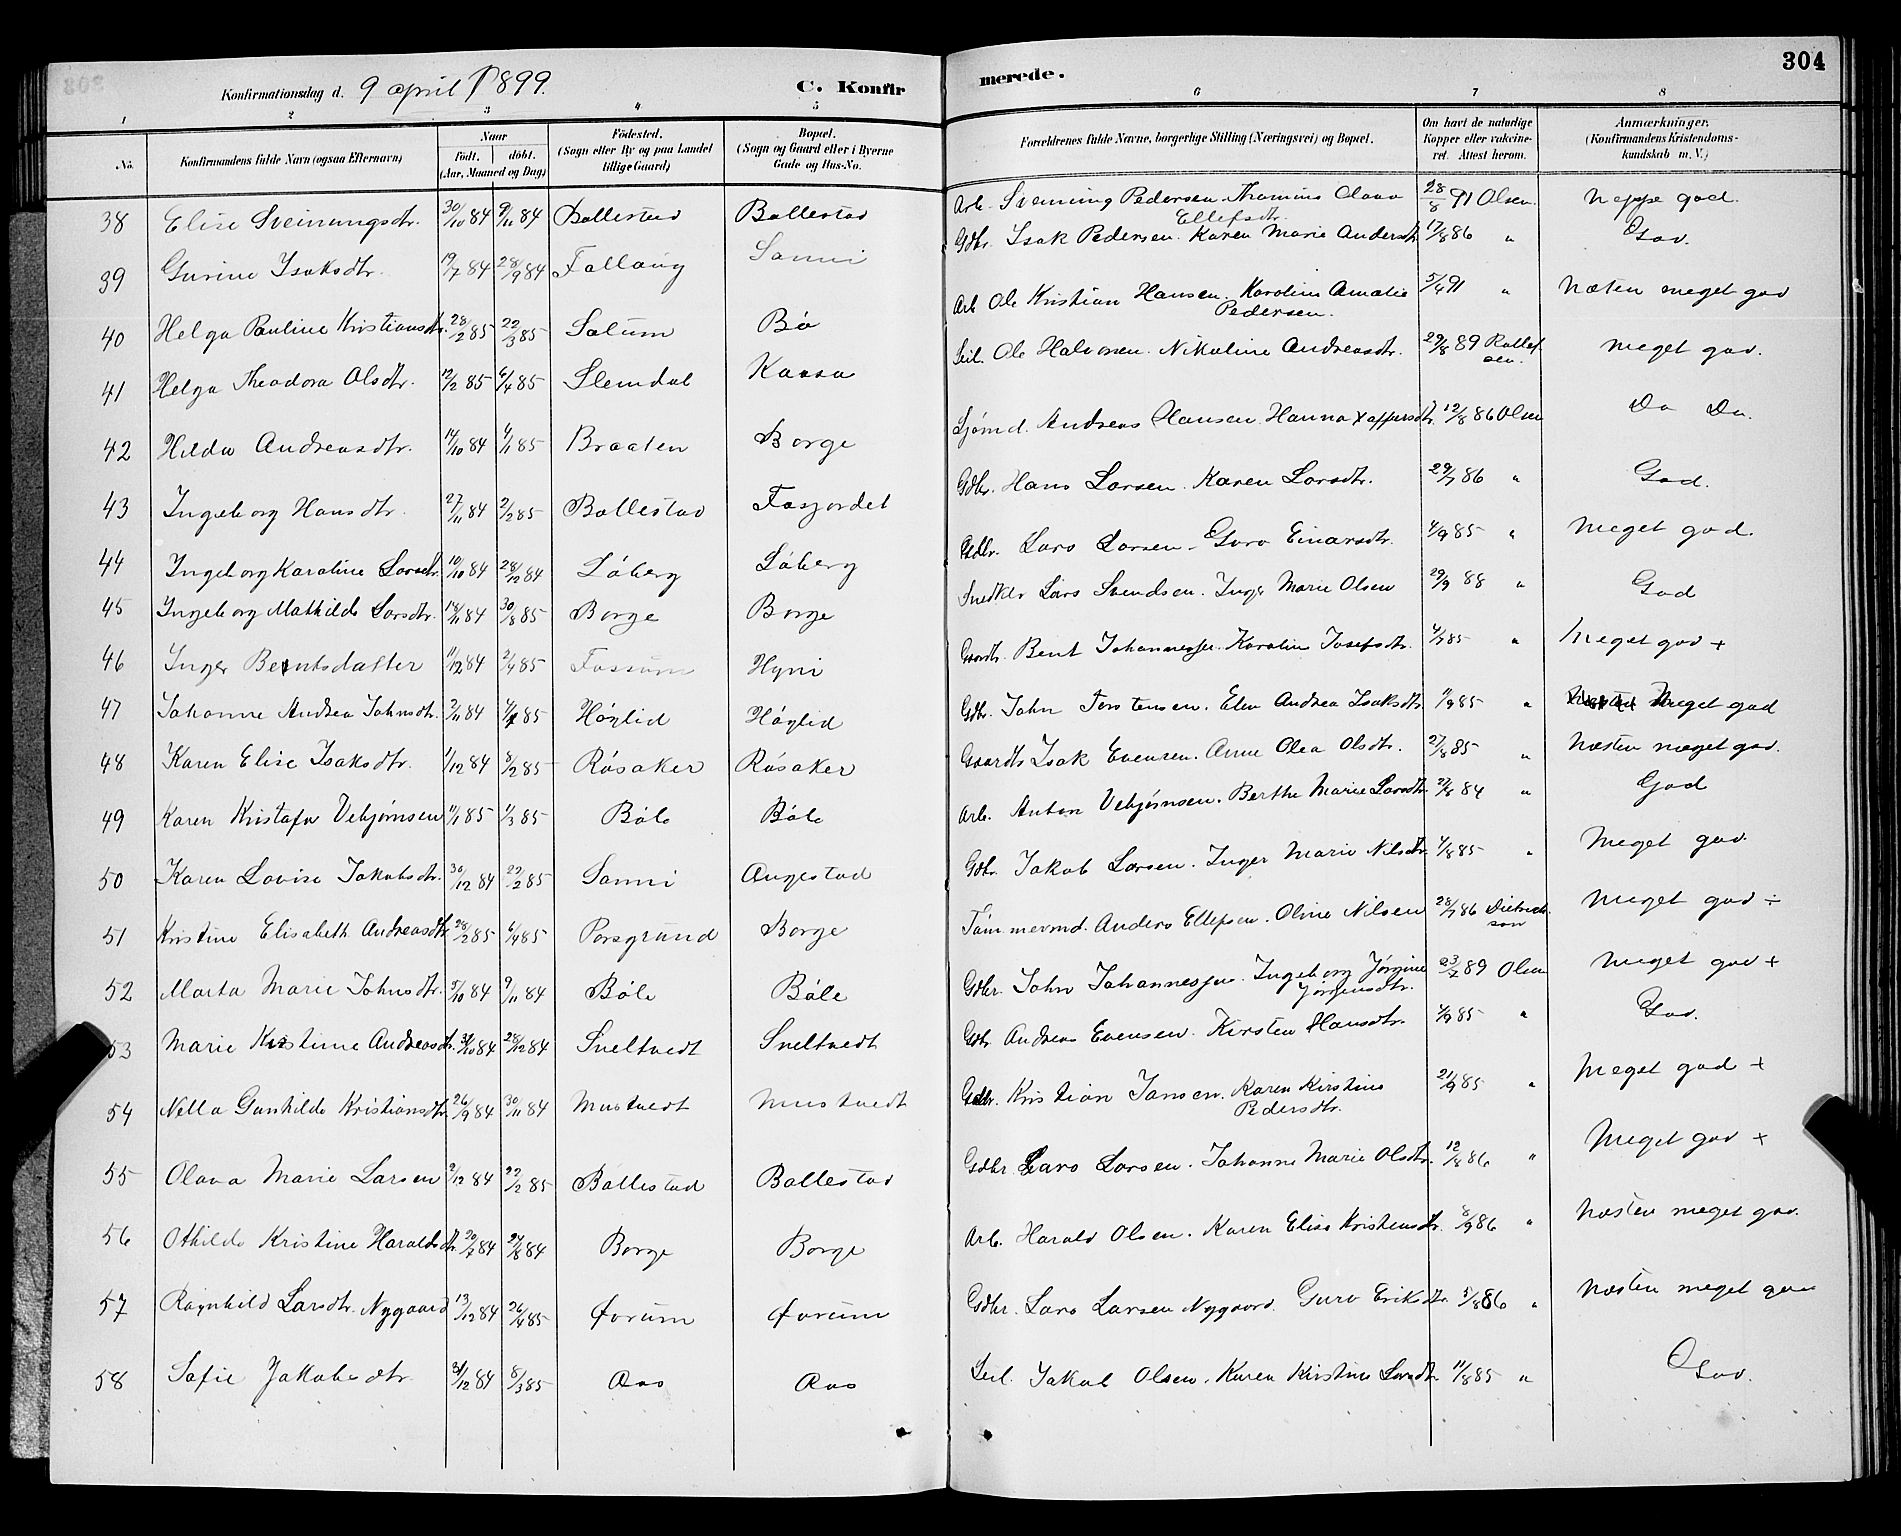 304
Konfirmationsdag d. 9 april 1899.
C. Konfirmerede.
1 2 3 4 5 6 7 8
No. Konfirmandens fulde Navn (ogsaa Efternavn) Naar födt. döbt. (Aar, Maaned og Dag) Födested. (Sogn eller By og paa Landet tillige Gaard) Bopæl. (Sogn og Gaard eller i Byerne Gade og Hus-No. Forældrenes fulde Navne, borgerlige Stilling (Næringsvei) og Bopæl. Om havt de naturlige Kopper eller vakcineret. Attest herom. Anmærkninger. (Konfirmandens Kristendomskundskab m. V.)
38 Elise Sveinungsdtr. 30/10 84 9/11 84 Ballestad Ballestad Arb. Svenning Pedersen. Olava Ellefsdtr. 28/8 91 Olsen neppe god.
39 Gurine Isaksdtr. 19/7 84 28/9 84 Fallaug Sanni Gdbr. Isak Pedersen. Karen Marie Andersdtr. 17/8 86 " God.
40 Helga Pauline Kristiansdtr. 28/2 85 22/3 85 Solum Bø Arb. Ole Kristian Hansen. Karoline Amalie Pedersen. 5/4 91 " næsten meget god
41 Helga Theodora Olsdtr. 12/2 85 6/4 85 Slemdal Kaasa Seil. Ole Halvorsen. Nikoline Andreasdtr. 29/8 89 meget god.
42 Hilda Andreasdtr. 14/10 84 4/1 85 Braaten Borge Sjømd. Andreas Hansen. Hanna 12/8 86 Olsen Do Do.
43 Ingeborg Hansdtr. 27/11 84 2/2 85 Ballestad Fossjordet Gdbr. Hans Larsen. Karen Larsdtr. 29/7 86 " God.
44 Ingeborg Karoline Larsdtr. 10/10 84 28/12 84 Løberg Løberg Gdbr. Lars Larsen. Guro Einarsdtr. 4/9 85 " meget god.
45 Ingeborg Mathilde Larsdtr. 18/11 84 30/8 85 Borge Borge Snedker Lars Svendsen. Inger Marie Olsen 29/9 88 " God
46 Inger Bentsdatter 11/12 84 2/4 85 Fossum Hyni Gaardbr. Bent Johannessen. Karoline Josefsdtr. 4/7 85 " Meget god +
47 Johanne Andrea Johnsdtr. 2/11 84 85 Høglid Høglid Gdbr. John Torstensen. Elen Andrea Isaksdtr. 85 " Meget god
48 Karen Elise Isaksdtr. 1/12 84 8/2 85 Røsaker Røsaker Gaardbr. Isak Evensen. Anne Olea Olsdtr. 27/8 85 " næsten meget god.
49 Karen Kristofa Vebjørnsen 11/1 85 1/3 85 Bøle Bøle Arb. Anton Vebjørnsen. Berthe Marie Larsdtr. 84 " God
50 Karen Lovise Jakobsdtr. 30/12 84 22/2 85 Sanni Augestad Gdbr. Jakob Larsen. Inger Marie Nilsdtr. 4/8 85 " Meget god.
51 Kristine Elisabeth Andreasdtr. 28/2 85 6/4 85 Porsgrund Borge Tømmermd. Anders Ellefsen. Oline Nilsen 28/7 86 Dietrichson meget god ÷
52 Marta Marie Johnsdtr. 5/10 84 9/11 84 Bøle Bøle Gdbr. John Johannessen. Ingeborg Jørgine Jørgensdtr. 89 Olsen Meget god +
53 Marie Kristine Andreasdtr. 31/10 84 28/12 84 Sneltvedt Sneltvedt Gdbr. Andreas Evensen. Kirsten Hansdtr. 4/9 85 " God.
54 Nella Gunhilde Kristiansdtr. 26/9 84 30/11 84 Mustvedt Mustvedt Gdbr. Kristian Jansen. Karen Kirstine Pedersdtr. 21/9 85 " Meget god +
55 Olava Marie Larsen 2/12 84 22/2 85 Ballestad Ballestad Gdbr. Lars Larsen. Johanne Marie Olsdtr. 12/8 86 " Meget god +
56 Othilde Kristine Haraldsdtr. 20/7 84 84 Borge Borge Arb. Harald Olsen. Karen Elise Kristensdtr. 8/9 86 " Næsten meget god.
57 Ragnhild Larsdtr. Nygaard 13/12 84 26/4 85 Forum Forum Gdbr. Lars Larsen Nygaard. Guro Eriksdtr. 5/8 86 " næsten meget god
58 Sofie Jakobsdtr. 31/12 84 8/3 85 Aas Aas Seil. Jakob Olsen. Karen Kirstine Larsdtr. 11/8 85 " God.